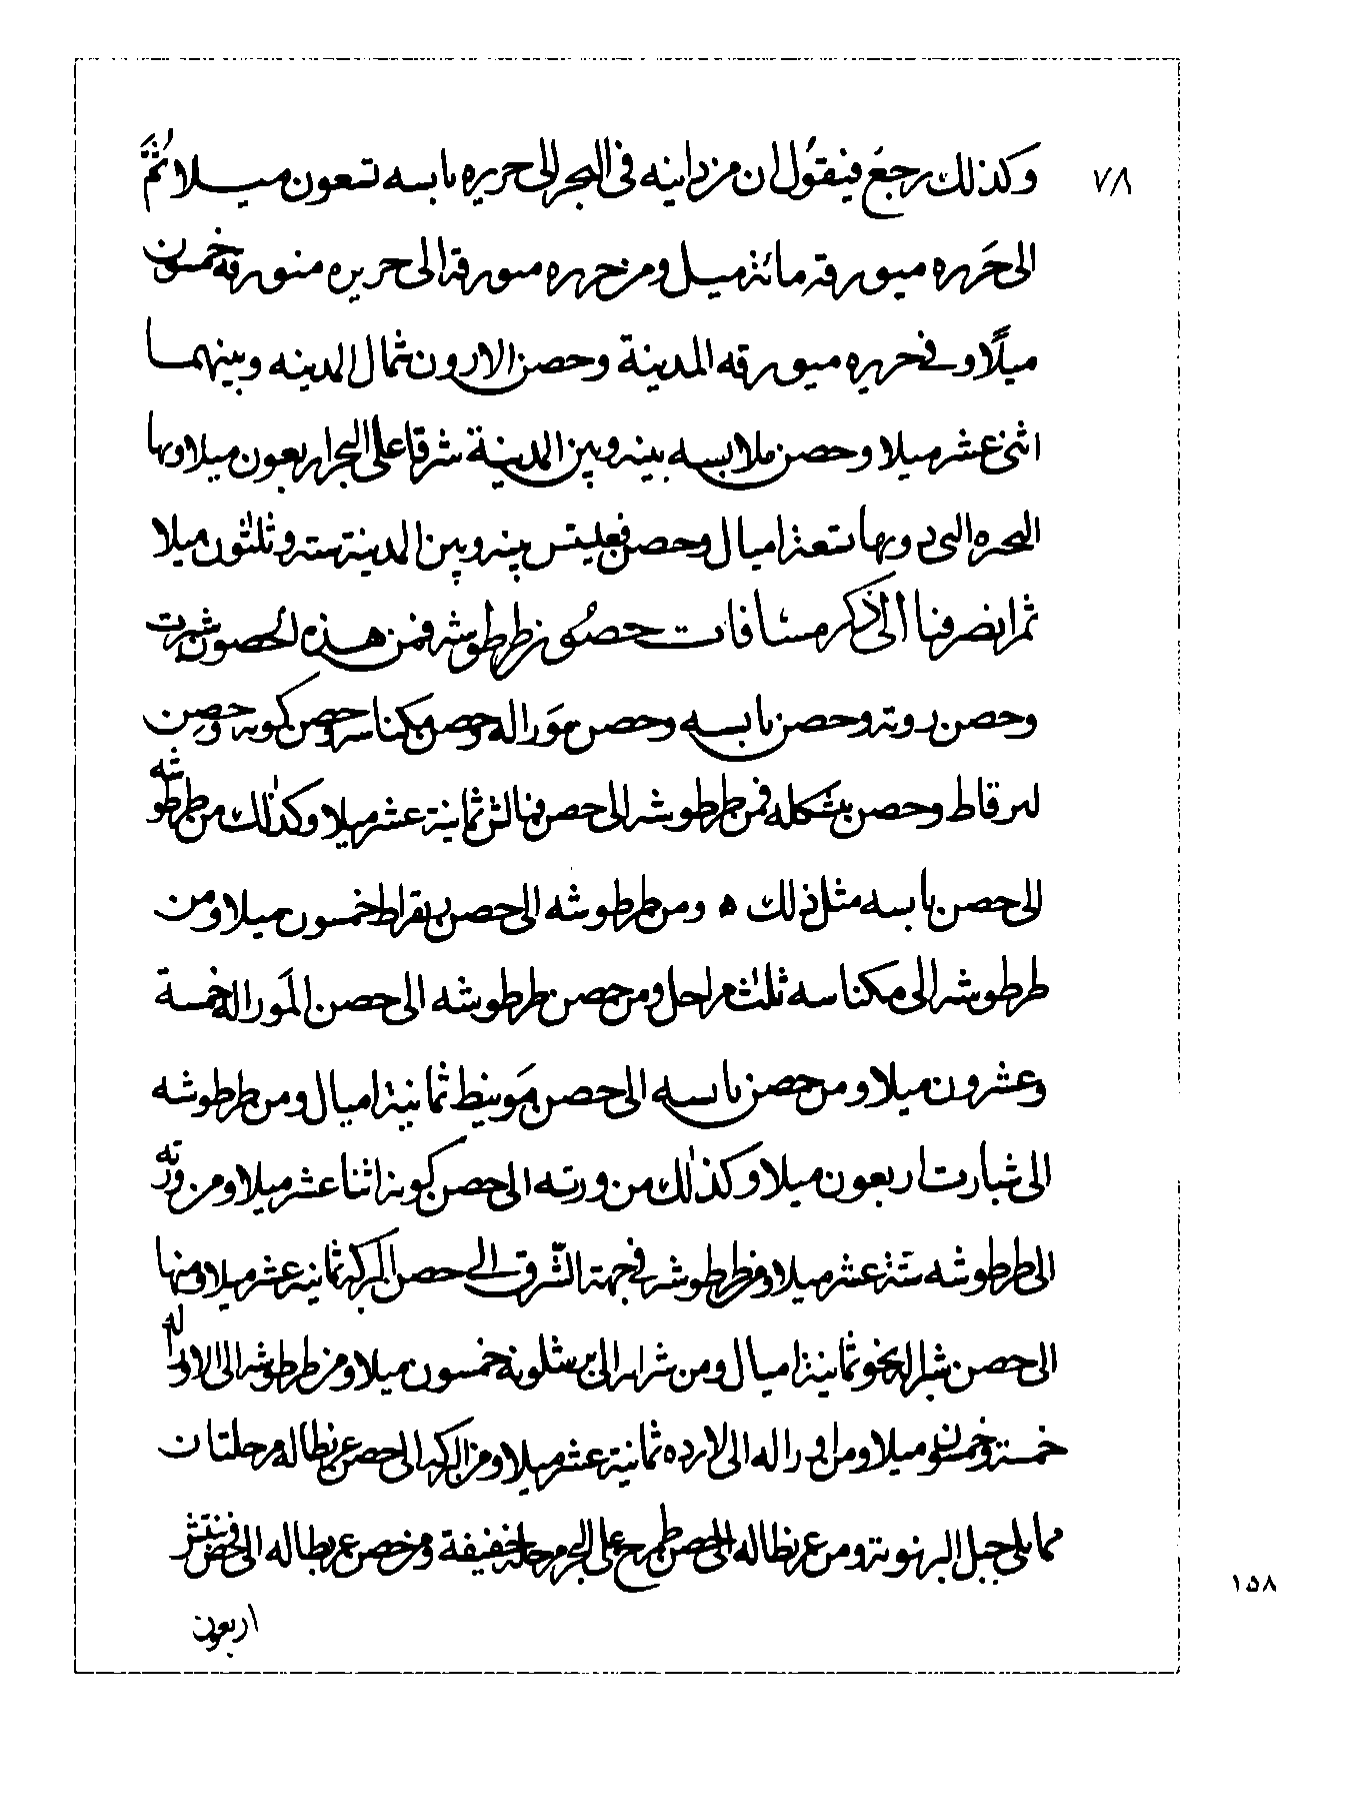 ٧٨
وكذلك رجع فيقول ان من دانيه فى البحر الى جزيره يابسه تسعون ميلا ثم
الى جزيره ميورقة مائة ميل ومن جزيره ميورقة الى جزيره منورقة خمسون
ميلًا وفي جزيره ميورقه المدينة وحصن الارون شمال المدينه وبينهما
اثنى عشر ميلا وحصن بلابسه بينه وبين المدينة شرقا على البحر اربعون ميلا وبها
البحره التى دورها تسعة اميال وحصن بينه وبين المدينة ستة وثلثون ميلا
ثم انصرفنا الى ذكر مسافات حصون طرطوشه فمن هذه الحصون شبرت
وحصن روته وحصن يابسه وحصن مورا له وحصن مكناسه وحصن كونه وحصن
لبرقاط وحصن بشكله فمن طرطوشه الى حصن ثمانية عشر ميلا وكذلك من طرطوشه
الى حصن يابسه مثل ذلك ه ومن طرطوشه الى حصن خمسون ميلا ومن
طرطوشه الى مكناسه ثلث مراحل ومن حصن طرطوشه الى حصن المورا له خمسة
وعشرون ميلا ومن حصن يابسه الى حصن مونيط ثمانية اميال ومن طرطوشه
الى شبارت اربعون ميلا وكذلك من ورته الى حصن كونه اثنا عشر ميلا ومن ورته
الى طرطوشه ستة عشر ميلا ومن طرطوشه في جهة الشرق الى حصن البركه ثمانية عشر ميلا ومنها
الى حصن نحو ثمانية اميال ومن الى برشلونه خمسون ميلا ومن طرطوشه الى
خمسة وخمسون ميلا ومن الى لارده ثمانية عشر ميلا ومن البركه الى حصن عربطاله مرحلتان
مما يلى جبل البرنوية ومن عربطاله الى حصن طرح على البحر مرحله خفيفة ومن حصن عربطاله الى حصن
اربعون
١٥٨